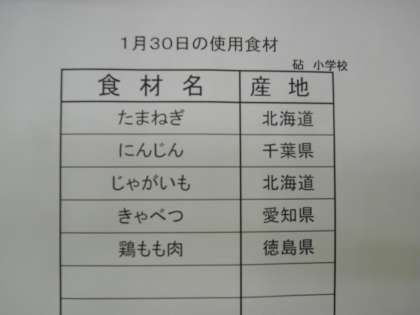 1月30日の使用食材
砧 小学校
食材名 産地
たまねぎ 北海道
にんじん 千葉県
じゃがいも 北海道
きゃべつ 愛知県
鶏もも肉 徳島県